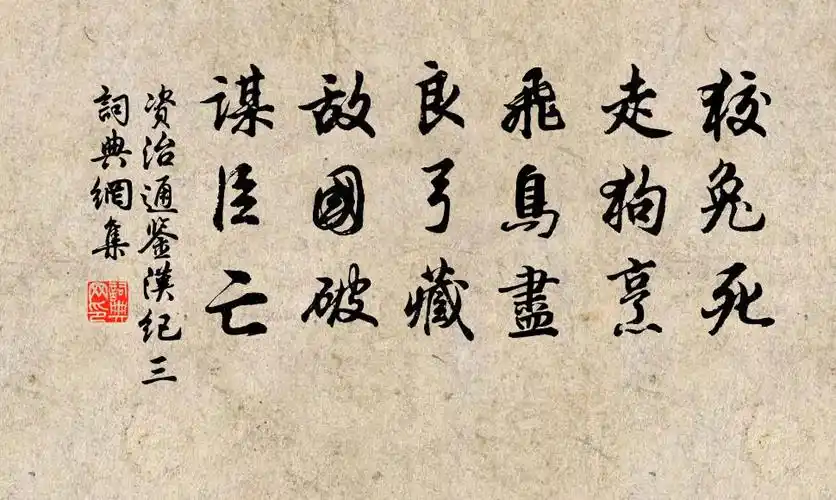 狡兔死
走狗烹
飛鳥盡
良弓藏
敌國破
謀臣亡
资治通鉴漢纪三
詞典網集
詞典網印